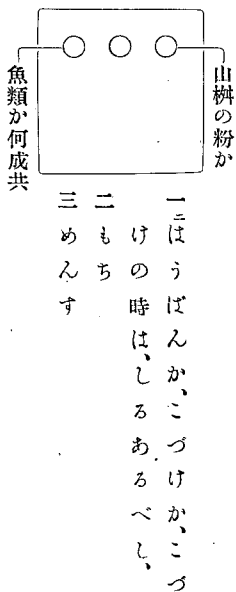 山桝の粉か
魚類か何成共
一ニはうばんか、こづけか、こづ
けの時は、しるあるべし、
二もち
三めんす